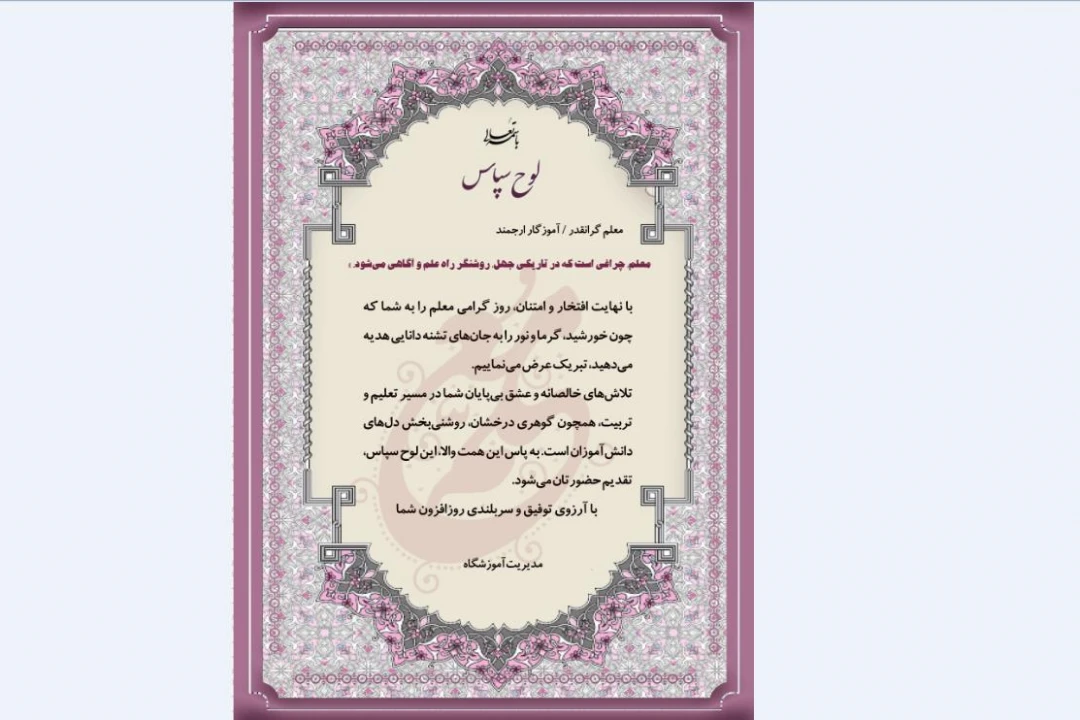 باسمه تعالی
لوح سپاس
معلم گرانقدر / آموزگار ارجمند
معلم، چراغی است که در تاریکی جهل، روشنگر راه علم و آگاهی می‌شود. »
با نهایت افتخار و امتنان، روز گرامی معلم را به شما که
چون خورشید، گرما و نور را به جان‌های تشنه دانایی هدیه
می‌دهید، تبریک عرض می‌نماییم.
تلاش‌های خالصانه و عشق بی‌پایان شما در مسیر تعلیم و
تربیت، همچون گوهری درخشان، روشنی‌بخش دل‌های
دانش‌آموزان است. به پاس این همت والا، این لوح سپاس،
تقدیم حضورتان می‌شود.
با آرزوی توفیق و سربلندی روزافزون شما
مدیریت آموزشگاه